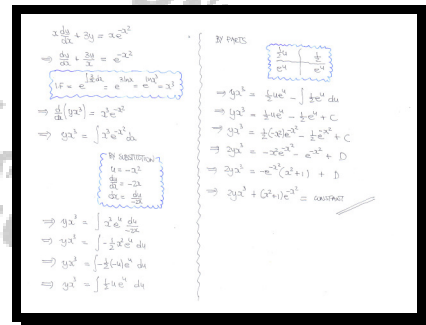 x dy/dx + 3y = xe^{-x²}
⇒ dy/dx + 3y/x = e^{-x²}
IF = e^{∫3/x dx} = e^{3lnx} = e^{lnx³} = x³
⇒ d/dx (yx³) = x³e^{-x²}
⇒ yx³ = ∫ x³e^{-x²} dx
BY SUBSTITUTION
u = -x²
du/dx = -2x
dx = du/-2x
⇒ yx³ = ∫ x³e^u du/-2x
⇒ yx³ = ∫ -½x²e^u du
⇒ yx³ = ∫ -½(-u)e^u du
⇒ yx³ = ∫ ½ue^u du
BY PARTS
½u | ½
e^u | e^u
⇒ yx³ = ½ue^u - ∫ ½e^u du
⇒ yx³ = ½ue^u - ½e^u + C
⇒ yx³ = ½(-x²)e^{-x²} - ½e^{-x²} + C
⇒ 2yx³ = -x²e^{-x²} - e^{-x²} + D
⇒ 2yx³ = -e^{-x²}(x²+1) + D
⇒ 2yx³ + (x²+1)e^{-x²} = CONSTANT